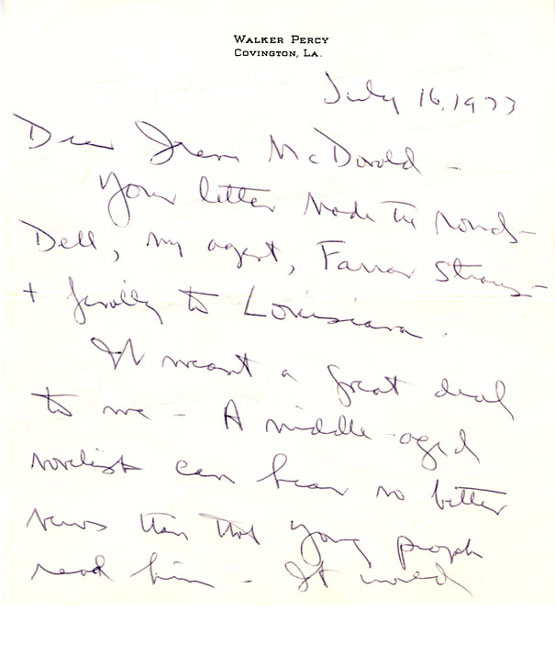 WALKER PERCY
COVINGTON, LA.
July 16, 1973
Dear McDonald –
Your letter made the rounds –
Dell, my agent, Farrar Straus –
+ finally to Louisiana.
It meant a great deal
to me – A middle-aged
novelist can hear no better
news than that young people
read him – It moved